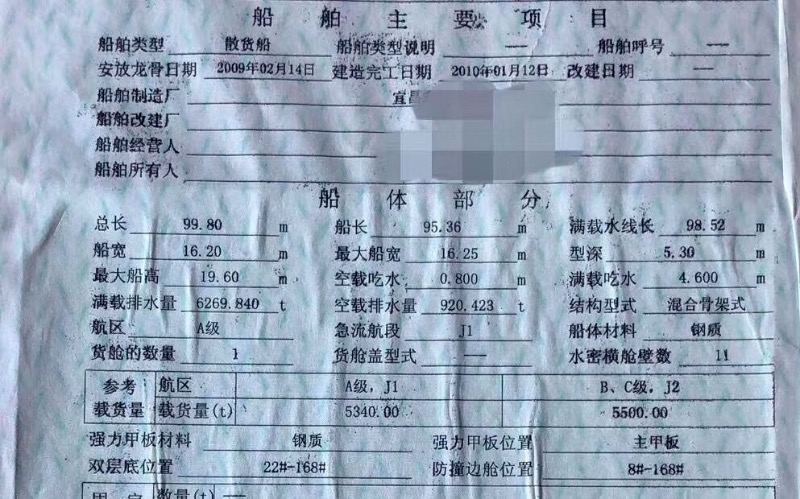 船舶主要项目
船舶类型 散货船 船舶类型说明 —— 船舶呼号 ——
安放龙骨日期 2009年02月14日 建造完工日期 2010年01月12日 改建日期 ——
船舶制造厂 宜昌
船舶改建厂
船舶经营人
船舶所有人
船体部分
总长 99.80 m 船长 95.36 m 满载水线长 98.52 m
船宽 16.20 m 最大船宽 16.25 m 型深 5.30 m
最大船高 19.60 m 空载吃水 0.800 m 满载吃水 4.600 m
满载排水量 6269.840 t 空载排水量 920.423 t 结构型式 混合骨架式
航区 A级 急流航段 J1 船体材料 钢质
货舱的数量 1 货舱盖型式 —— 水密横舱壁数 11
参考 航区 A级, J1 B、C级, J2
载货量 载货量(t) 5340.00 5500.00
强力甲板材料 钢质 强力甲板位置 主甲板
双层底位置 22#-168# 防撞边舱位置 8#-168#
数量(t) ——